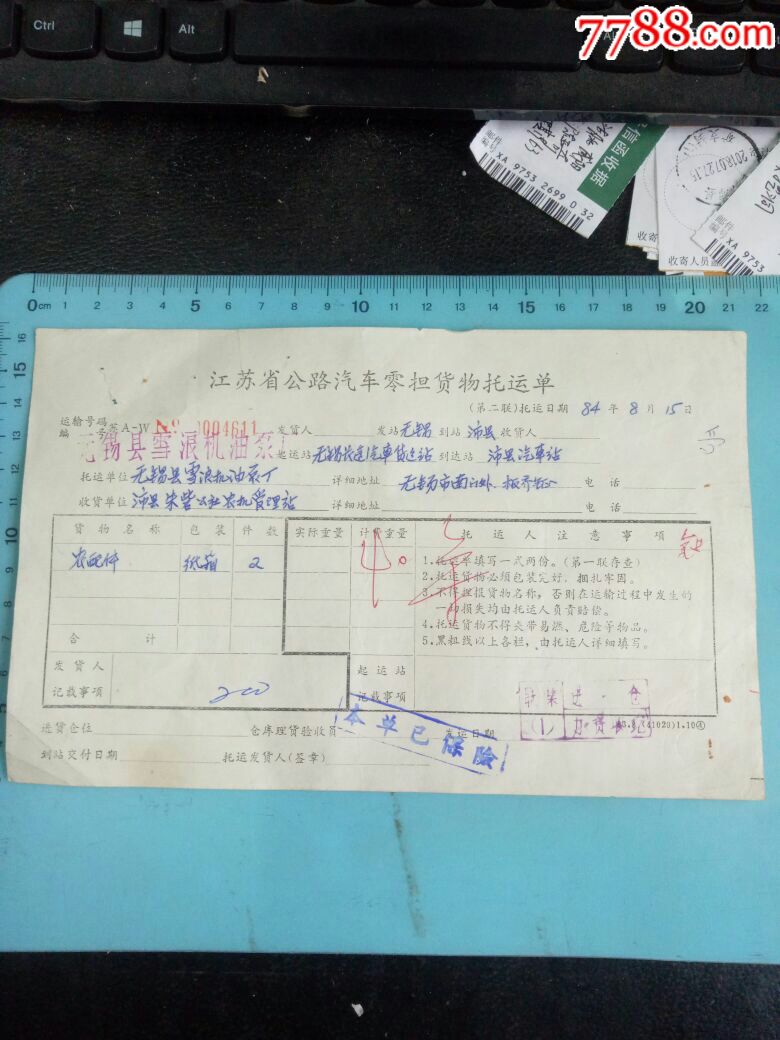 7788.com
Ctrl
Alt
信函收据
XA 9753 2699 0 32
2018.07.27.15
收寄
收寄人员
邮件
编号 XA 9753
0cm 1 2 3 4 5 6 7 8 9 10 11 12 13 14 15 16 17 18 19 20 21 22
江苏省公路汽车零担货物托运单
(第二联)托运日期 84 年 8 月 15 日
运输号码
编号 苏A-W №0004611 发货人 发站 无锡 到站 沛县 收货人
无锡县雪浪机油泵厂 起运站 到达站 沛县汽车站
托运单位 无锡县雪浪机油泵厂 详细地址 电话
收货单位 详细地址 电话
货物名称 包装 件数 实际重量 计费重量 托运人注意事项
农配件 纸箱 2 40
1.托运单填写一式两份。(第一联存查)
2.托运货物必须包装完好，捆扎牢固。
3.不得捏报货物名称，否则在运输过程中发生的
一切损失均由托运人负责赔偿。
4.托运货物不得夹带易燃、危险等物品。
5.黑粗线以上各栏，由托运人详细填写。
合计
发货人
记载事项 200
起运站
记载事项
进仓
(1)
进货仓位 仓库理货验收员 发运日期
本单已保险
(41020)1.10
到站交付日期 托运发货人(签章)